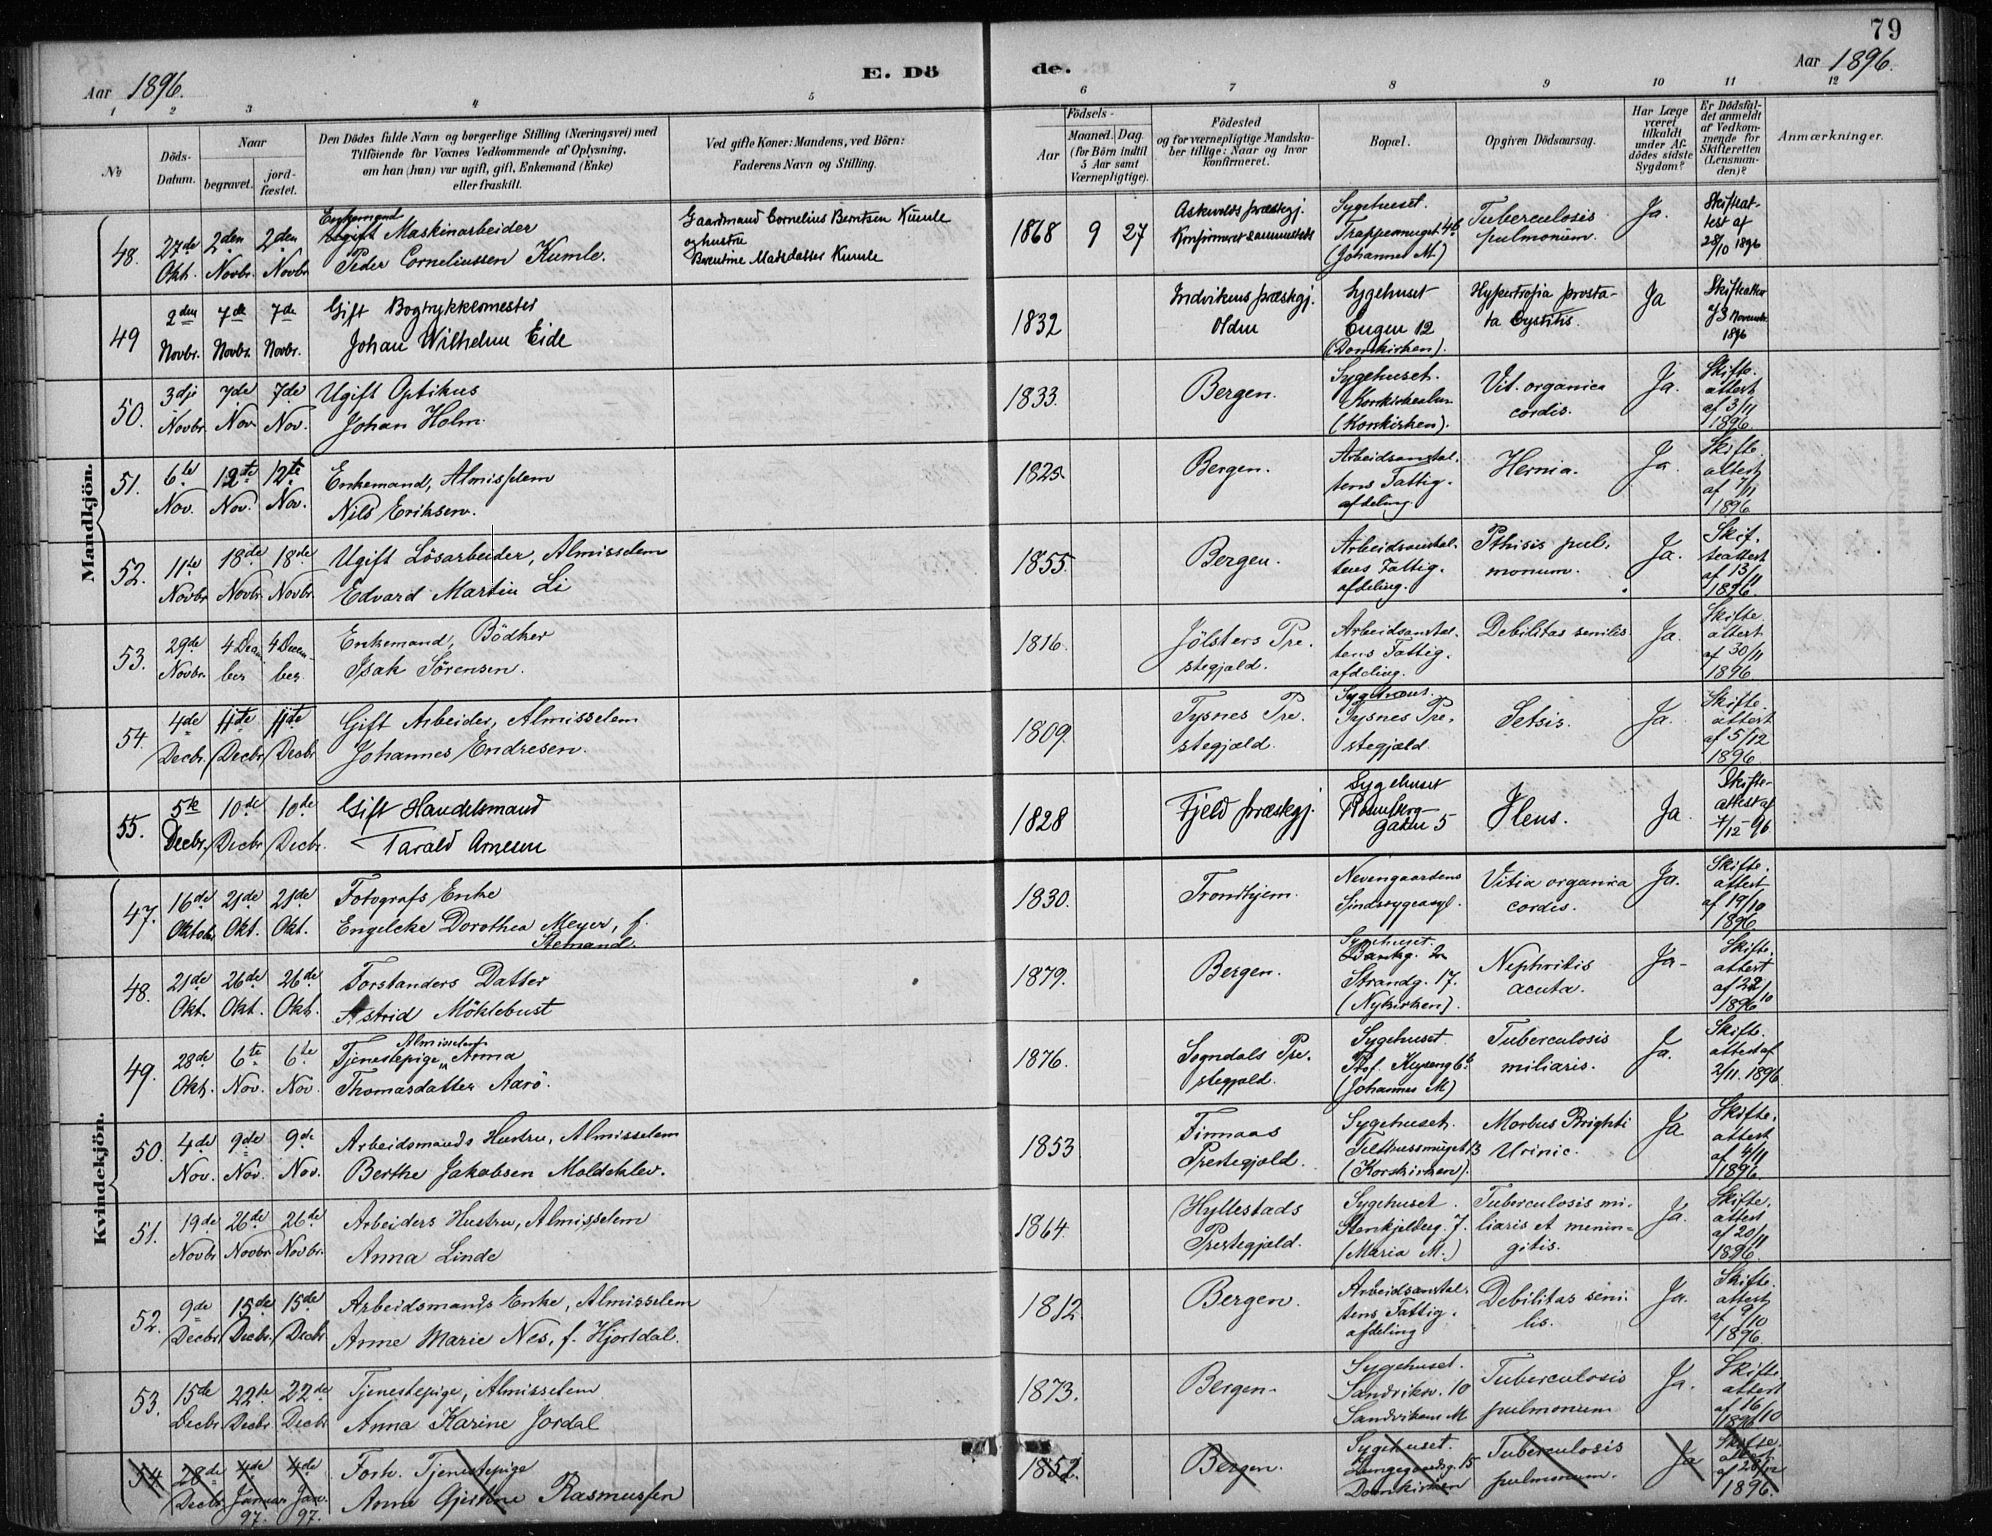 79
Aar 1896.
E. Dö
de.
Aar 1896.
1 2 3 4 5 6 7 8 9 10 11 12
No
Döds-
Datum.
Naar
begravet.
jord-
fæstet.
Den Dödes fulde Navn og borgerlige Stilling (Næringsvei) med
Tilföiende for Voxnes Vedkommende af Oplysning,
om han (hun) var ugift, gift, Enkemand (Enke)
eller fraskilt.
Ved gifte Koner: Mandens, ved Börn:
Faderens Navn og Stilling.
Födsels-
Aar
Maaned. Dag.
(for Börn indtil
5 Aar samt
Værnepligtige).
Födested
og for værnepligtige Mandska-
ber tillige: Naar og hvor
konfirmeret.
Bopæl.
Opgiven Dödsaarsag.
Har Læge
været
tilkaldt
under Af-
dödes sidste
Sygdom?
Er Dödsfal-
det anmeldt
af Vedkom-
mende for
Skifteretten
(Lensman-
den)?
Anmærkninger.
Mandkjön.
48. 27de Okt. 2den Novbr. 2den Novbr.
Enkemand
Ugift Maskinarbeider
Peder Corneliussen Kumle.
Gaardmand Cornelius Berntsen Kumle
og hustru
Berentine Madsdatter Kumle
1868 9 27
Askvolds præstegj.
Konfirmeret sammesteds
Sygehuset.
Trappesmuget 46
(Johannes M)
Tuberculosis
pulmonum.
Ja.
Skifteat-
test af
28/10 1896
49 2den Novbr. 7de Novbr. 7de Novbr.
Gift Bogtrykkermester
Johan Wilhelm Eide
1832
Indvikens præstegj.
Olden
Sygehuset
Engen 12
(Domkirken).
Hypertrofia prosta-
ta Cystitis.
Ja
Skifteattest
af 3 Novembr
1896
50. 3dje Novbr. 7de Nov. 7de Nov.
Ugift Optikus
Johan Holm.
1833.
Bergen.
Sygehuset.
Korskirkealm
(Korskirken).
Vit. organica
cordis.
Ja.
Skifte-
attest
af 3/11
1896.
51. 6te Nov. 12te Nov. 12te Nov.
Enkemand, Almisselem
Nils Eriksen.
1825.
Bergen.
Arbeidsanstal-
tens Fattig-
afdeling.
Hernia.
Ja.
Skifte
attest
af 7/11
1896
52. 11te Novbr. 18de Novbr. 18de Novbr.
Ugift Lösarbeider, Almisselem
Edvard Martin Li
1855.
Bergen.
Arbeidsanstal-
tens Fattig-
afdeling.
Pthisis pul-
monum.
Ja.
Skif-
teattest
af 13/11
1896.
53. 29de Novbr. 4 Decem-
ber 4 Decem-
ber.
Enkemand, Bödker
Isak Sörensen.
1816.
Jölsters Pre-
stegjæld.
Arbeidsanstal-
tens Fattig-
afdeling.
Debilitas senilis
Ja.
Skifte
attest
af 30/11
1896
54. 4de Decbr. 11te Decbr. 11te Decbr.
Gift Arbeider, Almisselem
Johannes Endresen.
1809.
Tysnes Pre-
stegjæld.
Sygehuset.
Tysnes Pre-
stegjæld.
Setsis.
Ja.
Skifte-
attest
af 5/12
1896
55. 5te Decbr. 10de Decbr. 10de Decbr.
Gift Handelsmand
Tarald Arnesen
1828
Fjeld præstegj.
Sygehuset
Rosenberg-
gaden 5
Ilens.
Ja.
Skifte-
attest af
7/12-96
Kvindekjön.
47. 16de Oktobr 21de Okt. 21de Okt.
Fotografs Enke
Engelcke Dorothea Meyer, f.
Stemand.
1830.
Trondhjem.
Nevengaardens
Sindssygeasyl.
Vitia organica
cordis.
Ja.
Skifte-
attest
af 19/10
1896
48. 21de Okt. 26de Okt. 26de Okt.
Forstanders Datter
Astrid Möklebust
1879.
Bergen.
Sygehuset.
Strandg. 17.
(Nykirken).
Nephritis
acuta.
Ja-
Skifte-
attest
af 22/10
1896
49. 28de Okt. 6te Nov. 6te Nov.
Almisselem
Tjenestepige, Anna
Thomasdatter Aarö.
1876.
Sogndals Pre-
stegjæld.
Sygehuset.
Prof. Keyserg 6.
(Johannes M)
Tuberculosis
miliaris.
Ja.
Skifte-
attest af
2/11. 1896
50. 4de Nov. 9de Nov. 9de Nov.
Arbeidsmands Hustru, Almisselem
Berthe Jakobsen Moldeklev.
1853
Finnaas
Prestegjæld.
Sygehuset.
(Korskirken).
Morbus Brighti
Urinic.
Ja
Skifte-
attest
af 4/11
1896
51. 19de Novbr. 26de Novbr. 26de Novbr.
Arbeiders Hustru, Almisselem
Anna Linde
1864.
Hyllestads
Prestegjæld.
Sygehuset.
Stenkjelderg. 7.
(Maria M.)
Tuberculosis mi-
liaris et menin-
gitis.
Ja.
Skifte-
attest
af 20/11
1896
52. 9de Decbr. 15de Decbr. 15de Decbr.
Arbeidsmands Enke, Almisselem
Anne Marie Nes, f. Hjortdal.
1812.
Bergen.
Arbeidsanstal-
tens Fattig-
afdeling
Debilitas seni-
lis.
Ja.
Skifte-
attest
af 9/10
1896.
53. 15de Decbr. 22de Decbr. 22de Decbr.
Tjenestepige, Almisselem
Anna Karine Jordal
1873.
Bergen.
Sygehuset.
Sandviksv. 10
Sandvikens M
Tuberculosis
pulmonum
Ja.
Skifte
attest
af 16/10
1896
54 28de Decbr. 4de Januar 97. 4de Jan. 97.
Forh. Tjenestepige
Anne Gjertine Rasmussen
1852.
Bergen.
Sygehuset.
Lungegaardsg. 15
Domkirken
Tuberculosis
pulmonum.
Ja
Skifte-
attest
af 28/12
1896.